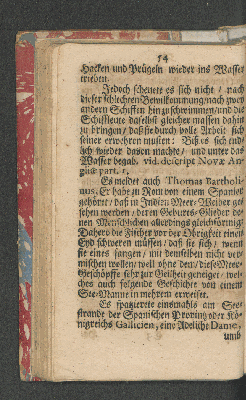 54
Hacken und Prügeln wieder ins Wasser
trieben.
Jedoch scheuete es sich nicht / nach
dieser schlechten Bewillkommung / nach zwey
andern Schiffen hin zu schwimmen / und die
Schiffleute daselbst gleicher massen dahin
zu bringen / daß sie durch volle Arbeit sich
seiner erwehren musten: Biß es sich end-
lich wieder davon machte / und unter das
Wasser begab. vid. descript Novæ An-
gliæ part. 1.
Es meldet auch Thomas Bartholi-
nus, Er habe zu Rom von einem Spanier
gehöret / daß in Indien Meer-Weiber ge-
sehen werden / deren Geburts-Glieder de-
nen Menschlichen allerdings gleichförmig:
Dahero die Fischer vor der Obrigkeit einen
Eyd schweren müssen / daß sie sich / wenn
sie eines fangen / mit demselben nicht ver-
mischen wollen / weil ohne dem / diese Meer-
Geschöpffe sehr zur Geilheit geneiget / wel-
ches auch folgende Geschichte von einem
See-Manne in mehrern erweiset.
Es spatzierete einsmahls am See-
strande der Spanischen Provintz oder Kö-
nigreichs Gallicien, eine Adeliche Dame,
umb